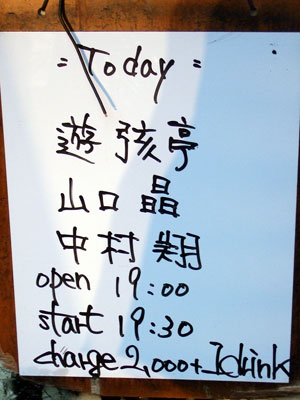 = Today =
遊弦亭
山口晶
中村翔
open 19:00
start 19:30
charge 2,000+1drink